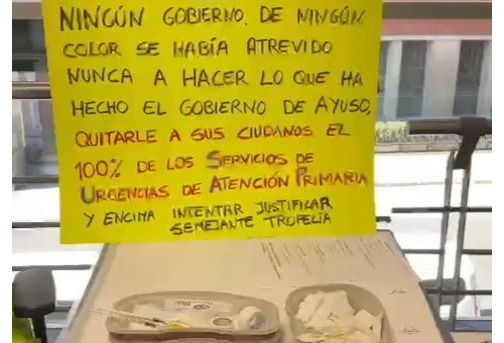 NINGÚN GOBIERNO, DE NINGÚN
COLOR SE HABÍA ATREVIDO
NUNCA A HACER LO QUE HA
HECHO EL GOBIERNO DE AYUSO,
QUITARLE A SUS CIUDANOS EL
100% DE LOS SERVICIOS DE
URGENCIAS DE ATENCIÓN PRIMARIA
Y ENCIMA INTENTAR JUSTIFICAR
SEMEJANTE TROPELÍA